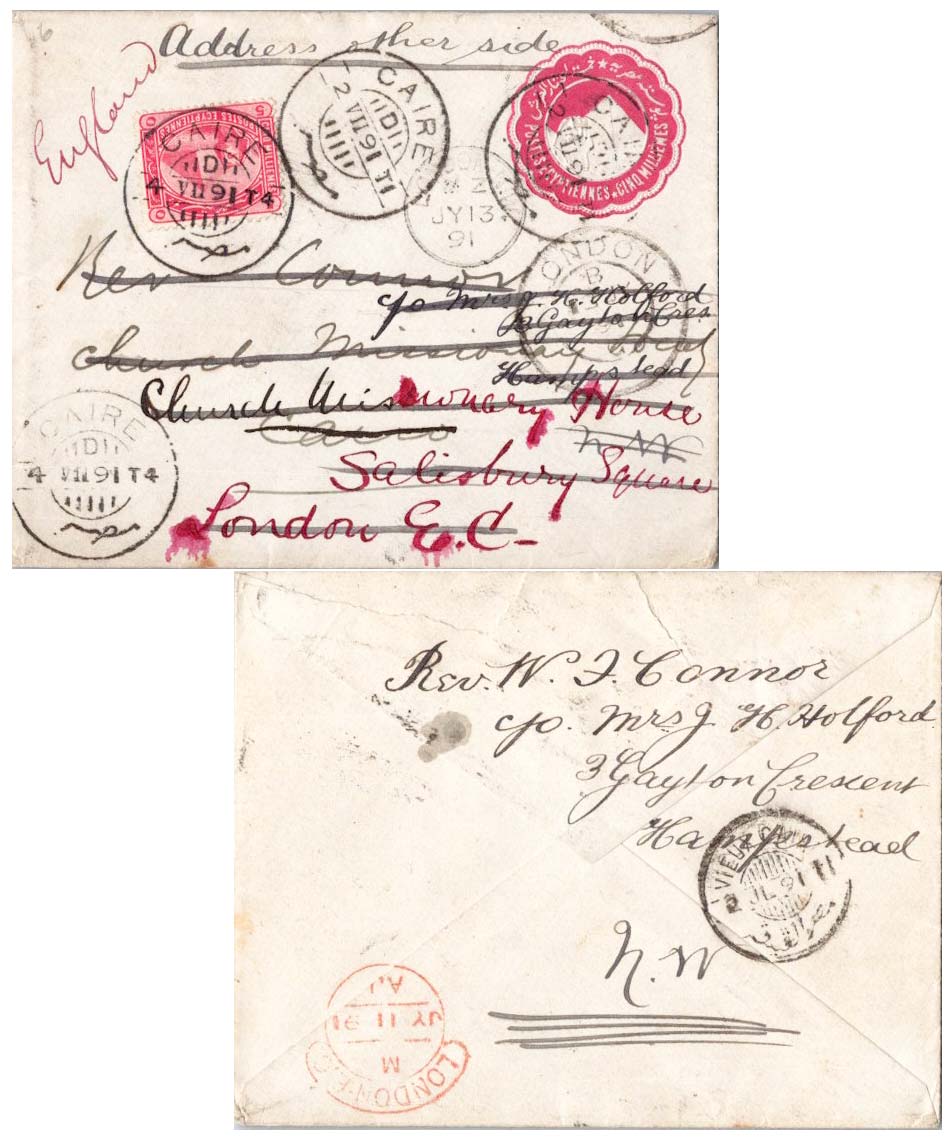 Address other side
England
CAIRE
D
4 VII 91 T4
CINQ MILLIEMES
POSTES EGYPTIENNES
CAIRE
D
2 VII 91 T1
POSTES EGYPTIENNES
CINQ MILLIEMES
JY 13
91
LONDON
B
Rev Connor
c/o Mrs J. H. Holford
3 Gayton Cres.
Church Missionary
Hampstead
Church Missionary House
Cairo
N W
Salisbury Square
London E.C-
CAIRE
D
4 VII 91 T4
Rev. W. F Connor
c/o. Mrs J H. Holford
3 Gayton Crescent
Hampstead
VIEUX CAIRE
2 JL 91
N. W
LONDON
M
JY 11 91